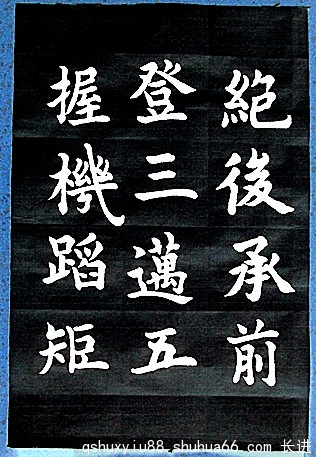 絶後承前
登三邁五
握機蹈矩
qshuxyju88.shuhua66.com 长进